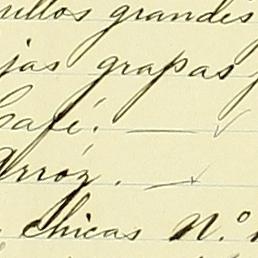 uillos grandes
jas grapas
Café. — ✓
Arróz. —
chicas N.º